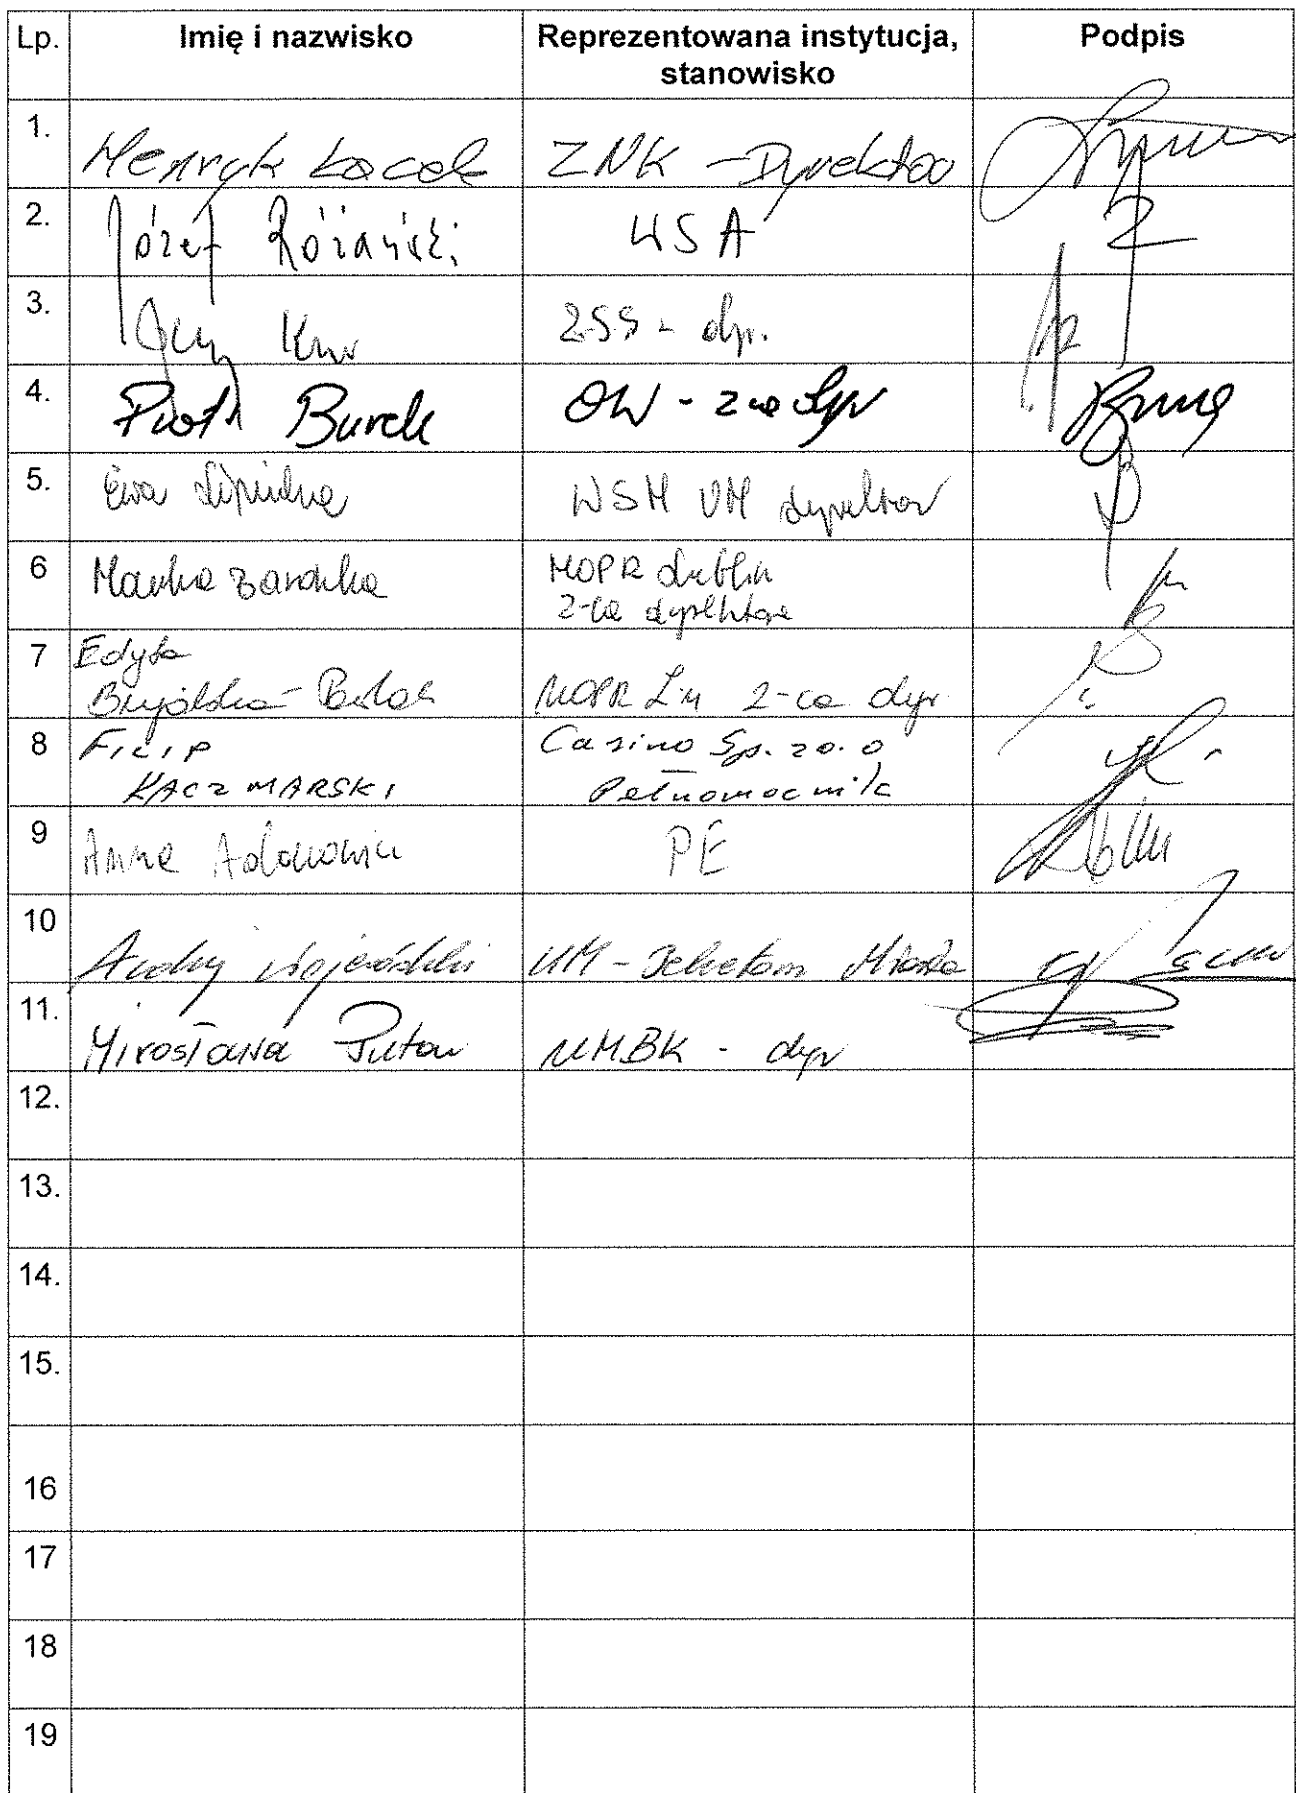 Lp. Imię i nazwisko Reprezentowana instytucja, Podpis
stanowisko
1. Henryk Łacek ZNK - Dyrektor
2. Józef Różański WSA
3. Jerzy ZSS - dyr.
4. Piotr Burek OW - z-ca dyr
5. Ewa Lipińska WSM UM dyrektor
6 MOPR Lublin
z-ca dyrektora
7 Edyta
MOPR L-n z-ca dyr.
8 FILIP Casino Sp. z o. o
KACZMARSKI Pełnomocnik
9 Anna Adamowicz PE
10 Andrzej Wojewódzki UM - Sekretarz Miasta
11. Mirosława Puton UMBK - dyr
12.
13.
14.
15.
16
17
18
19